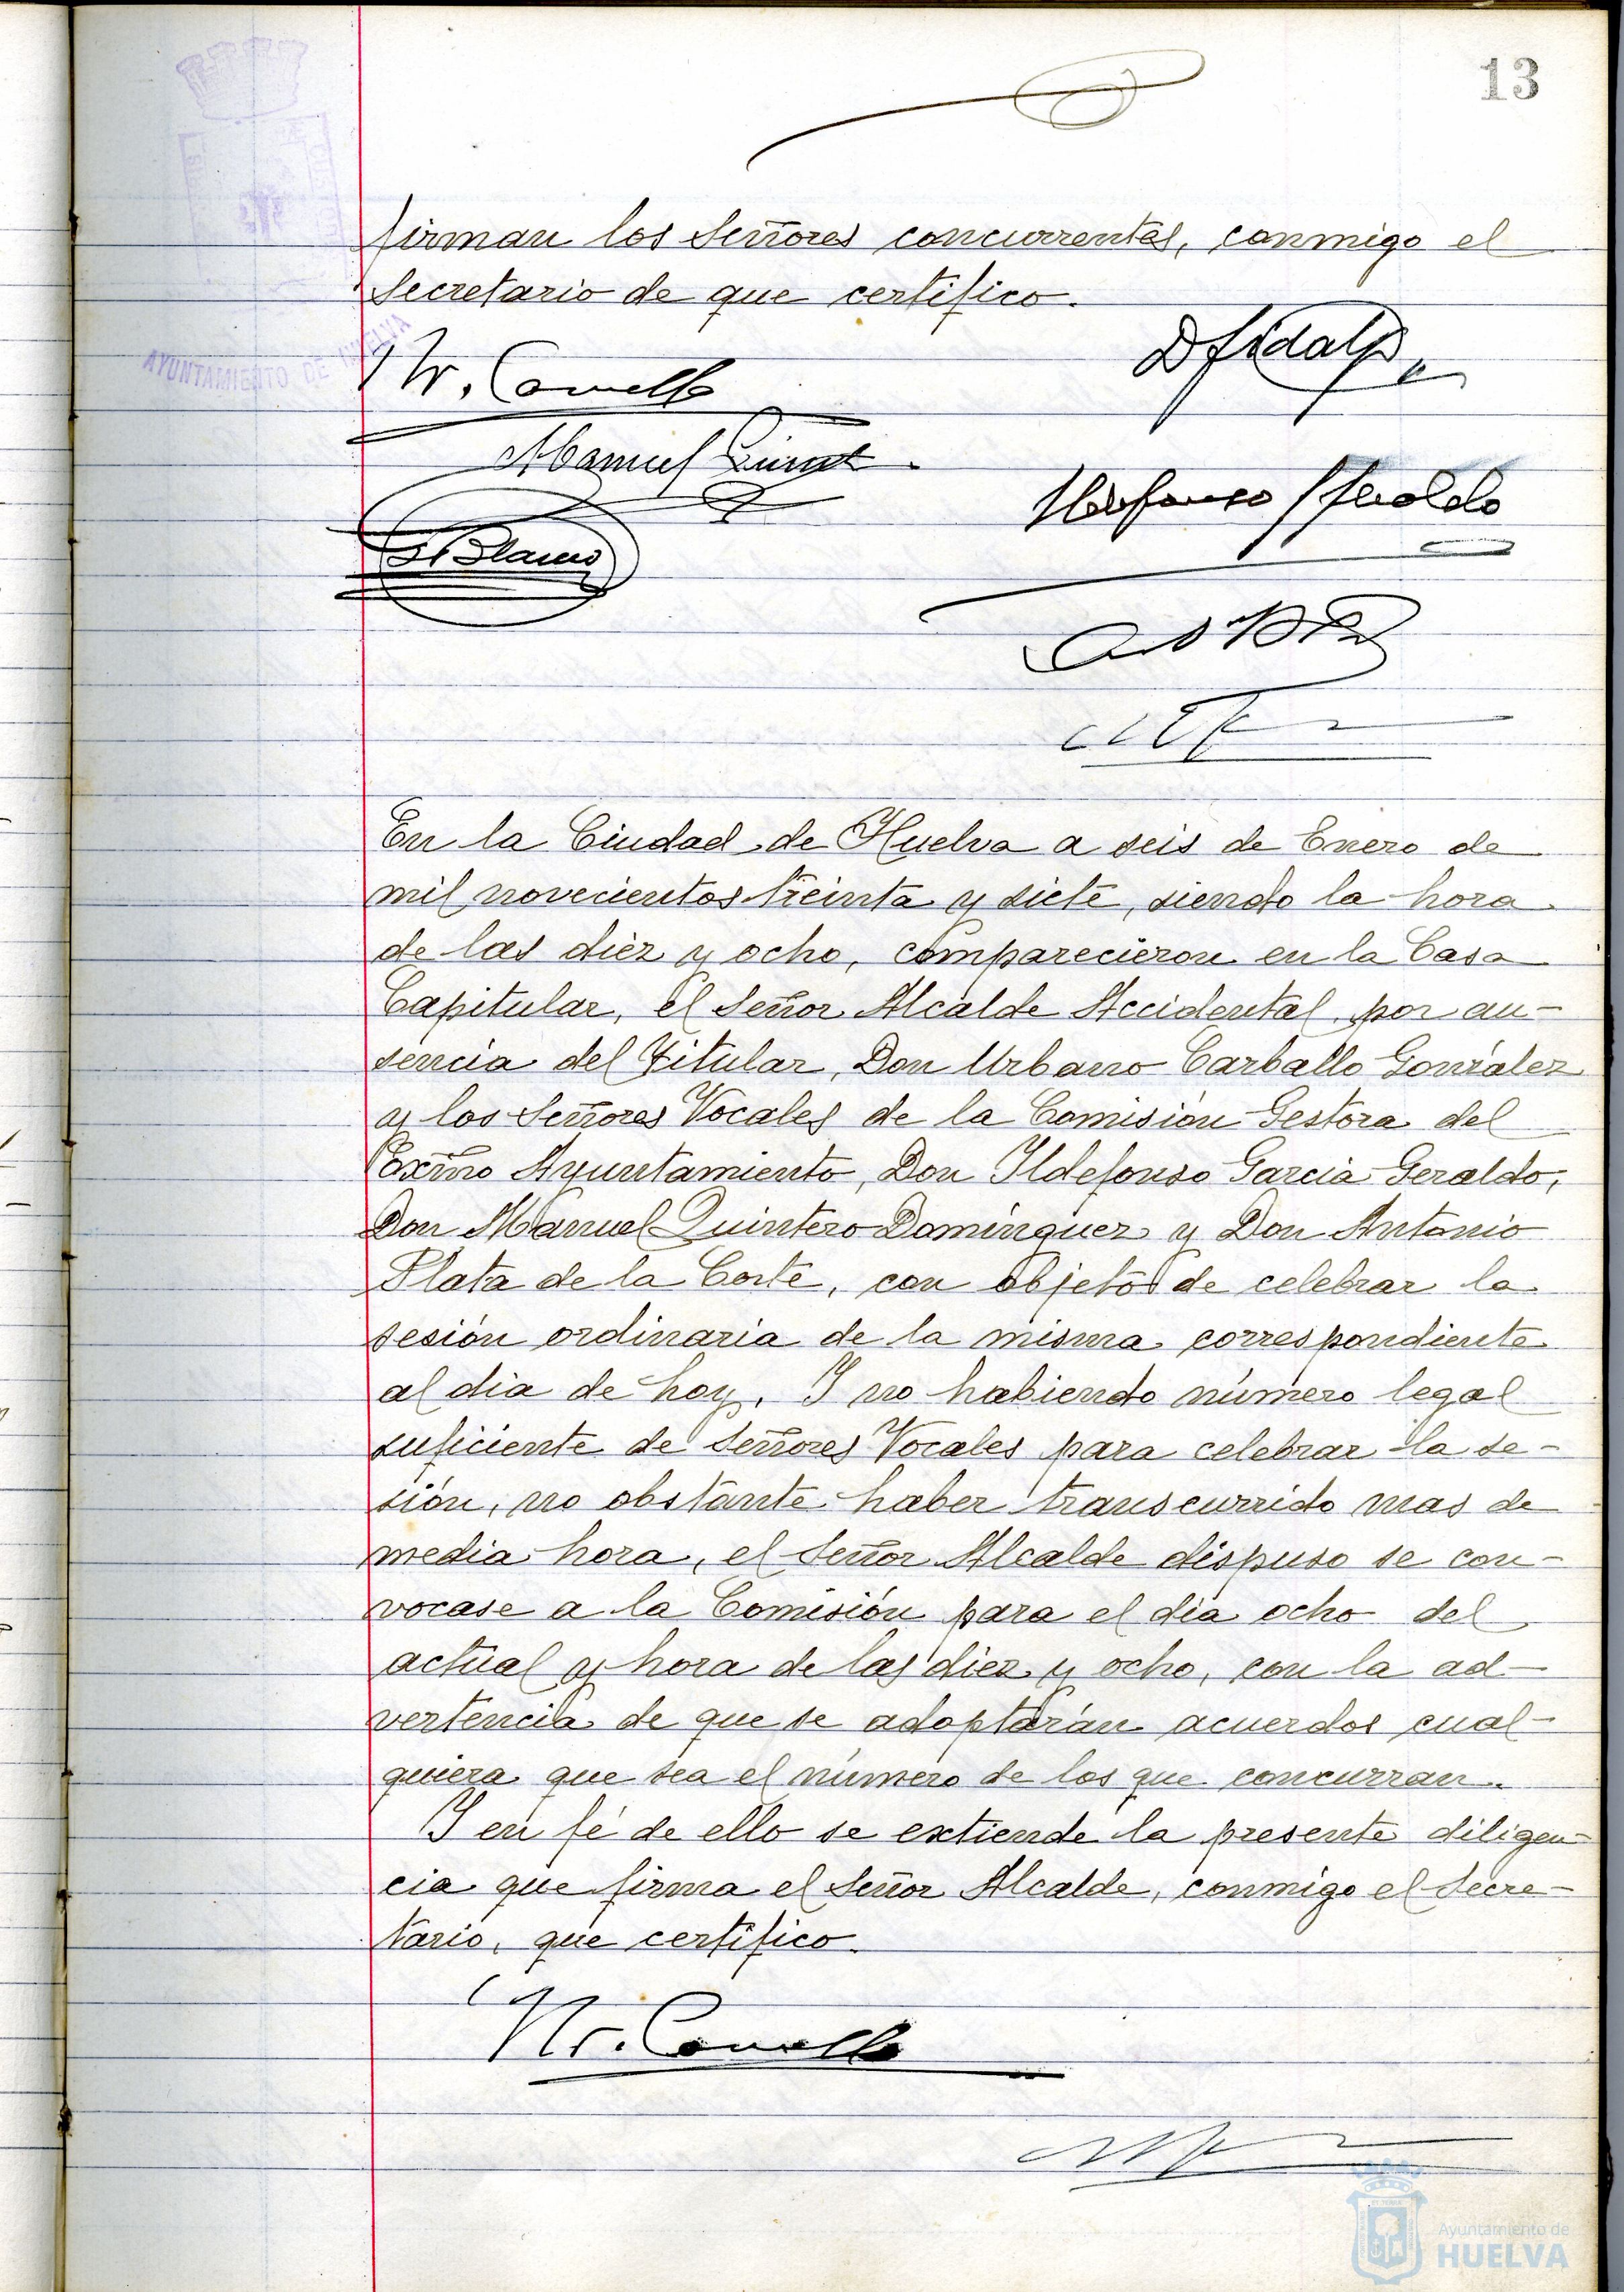 13
firman los Señores concurrentes, conmigo el
Secretario de que certifico.
AYUNTAMIENTO DE HUELVA
Manuel
Blanco
Ildefonso Geraldo
En la Ciudad de Huelva a seis de Enero de
mil novecientos treinta y siete, siendo la hora
de las diez y ocho, comparecieron en la Casa
Capitular, el Señor Alcalde Accidental por au-
sencia del Titular, Don Urbano Carballo González
y los Señores Vocales de la Comisión Gestora del
Excmo Ayuntamiento, Don Ildefonso Garcia Geraldo,
Don Manuel Quintero Dominguez y Don Antonio
Plata de la Corte, con objeto de celebrar la
sesión ordinaria de la misma correspondiente
al dia de hoy. Y no habiendo número legal
suficiente de Señores Vocales para celebrar la se-
sión, no obstante haber transcurrido mas de
media hora, el Señor Alcalde dispuso se con-
vocase a la Comisión para el dia ocho del
actual y hora de las diez y ocho, con la ad-
vertencia de que se adoptarán acuerdos cual-
quiera que sea el número de los que concurran.
Y en fé de ello se extiende la presente diligen-
cia que firma el Señor Alcalde, conmigo el Secre-
tario, que certifico.
Ayuntamiento de
HUELVA